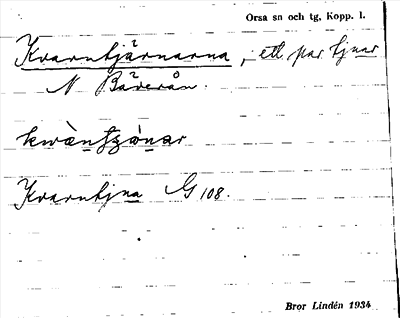 Orsa sn och tg, Kopp. l.
Kvarntjärnarna, ett par tjnar
N Bäverån.
kwàntjónar
Kvarntjna G 108.
Bror Lindén 1934